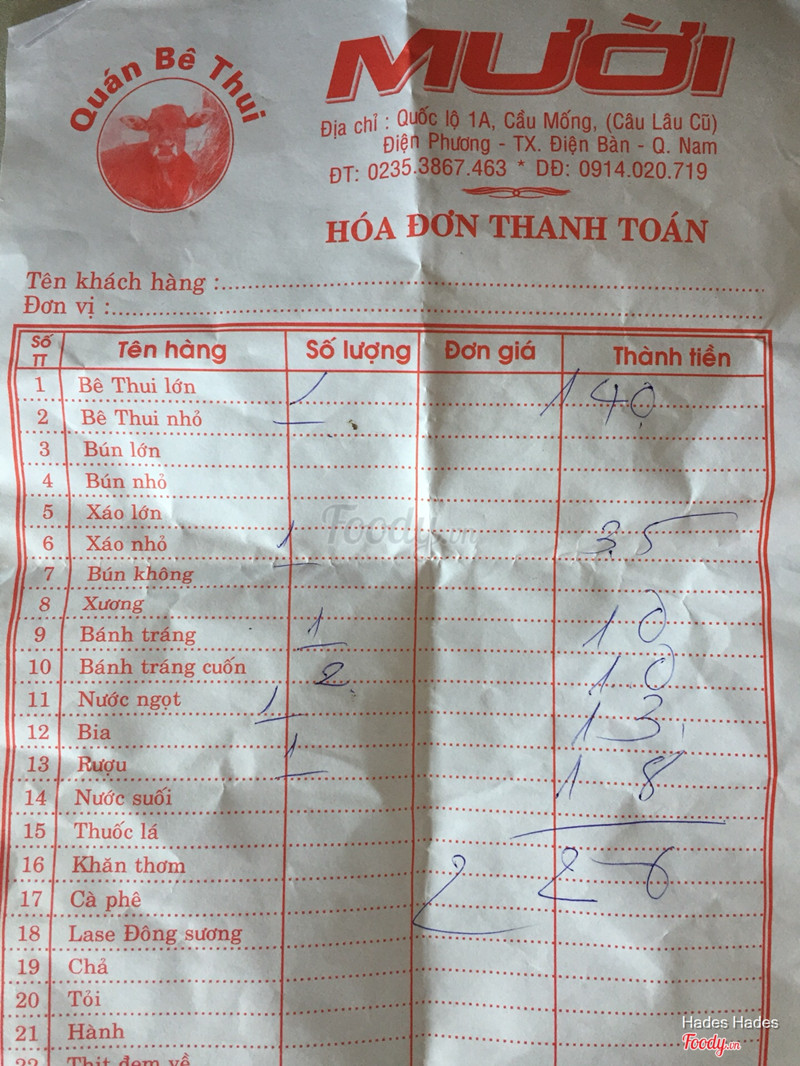 Quán Bê Thui
MƯỜI
Địa chỉ : Quốc lộ 1A, Cầu Mống, (Câu Lâu Cũ)
Điện Phương - TX. Điện Bàn - Q. Nam
ĐT: 0235.3867.463 * DĐ: 0914.020.719
HÓA ĐƠN THANH TOÁN
Tên khách hàng :
Đơn vị :
Số TT Tên hàng Số lượng Đơn giá Thành tiền
1 Bê Thui lớn 1 140
2 Bê Thui nhỏ
3 Bún lớn
4 Bún nhỏ
5 Xáo lớn
6 Xáo nhỏ 1 35
7 Bún không
8 Xương
9 Bánh tráng 1 10
10 Bánh tráng cuốn 2 10
11 Nước ngọt 1 13
12 Bia
13 Rượu 1 18
14 Nước suối
15 Thuốc lá
16 Khăn thơm 2 26
17 Cà phê
18 Lase Đông sương
19 Chả
20 Tỏi
21 Hành
22 Thịt đem về
Foody.vn
Hades Hades
Foody.vn